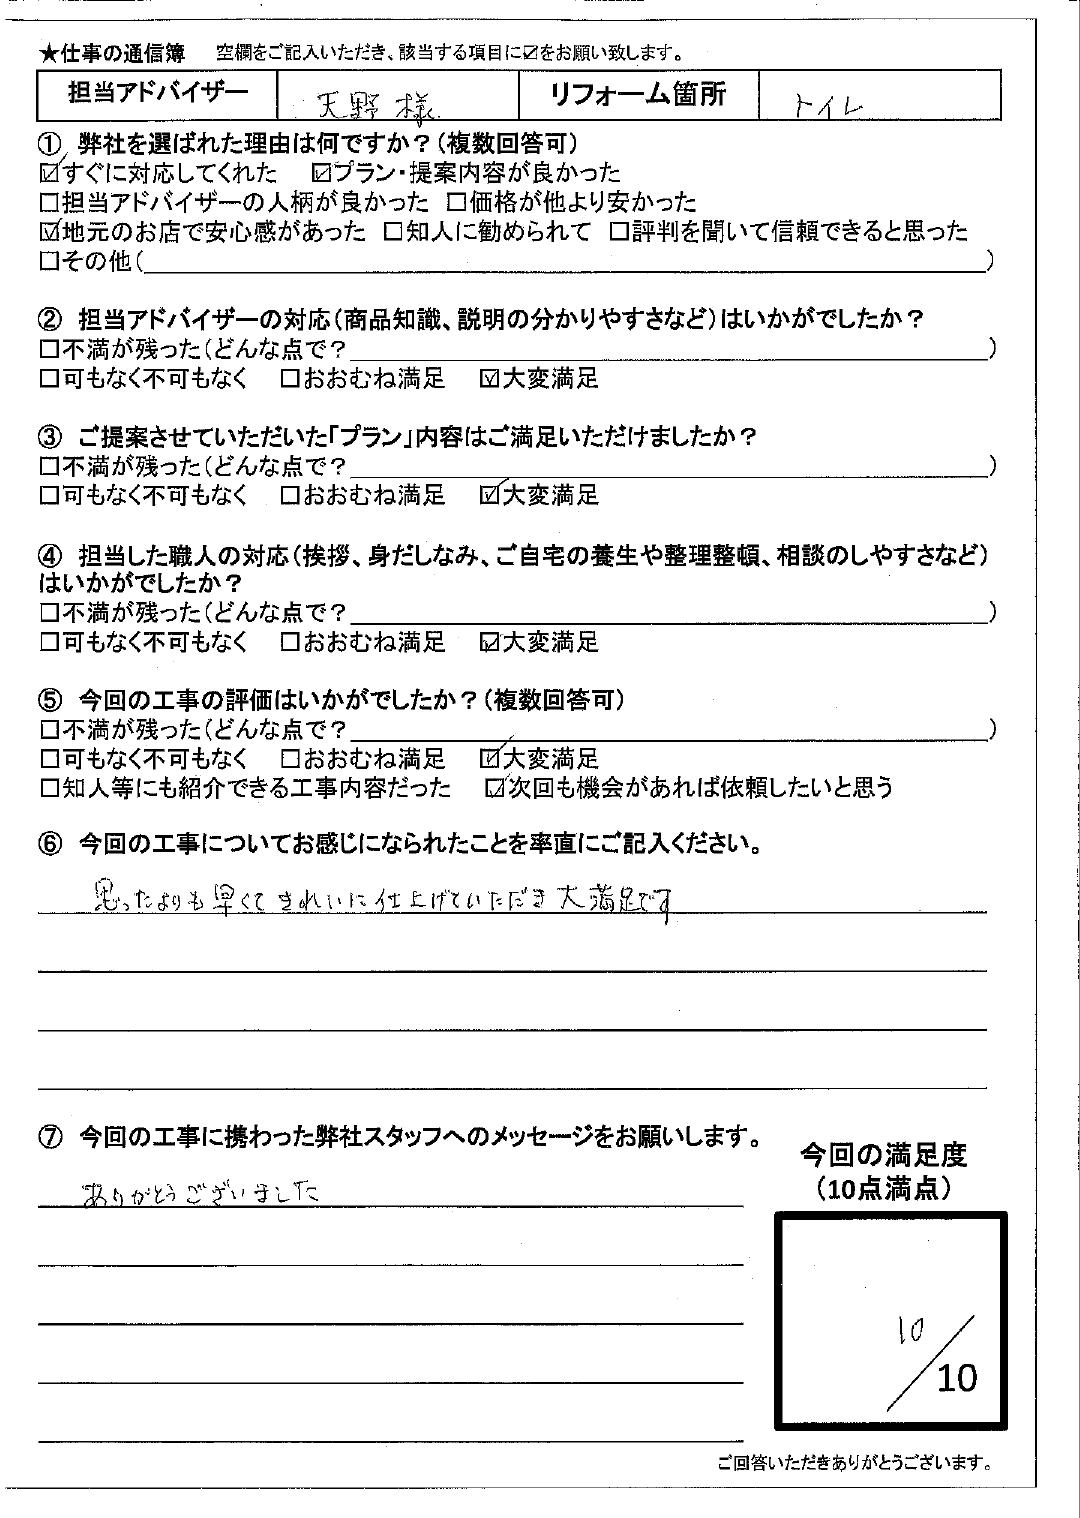 ★仕事の通信簿 空欄をご記入いただき、該当する項目に☑をお願い致します。
担当アドバイザー 天野 様 リフォーム箇所 トイレ
① 弊社を選ばれた理由は何ですか？（複数回答可）
☑すぐに対応してくれた ☑プラン・提案内容が良かった
□担当アドバイザーの人柄が良かった □価格が他より安かった
☑地元のお店で安心感があった □知人に勧められて □評判を聞いて信頼できると思った
□その他（ ）
② 担当アドバイザーの対応（商品知識、説明の分かりやすさなど）はいかがでしたか？
□不満が残った（どんな点で？ ）
□可もなく不可もなく □おおむね満足 ☑大変満足
③ ご提案させていただいた「プラン」内容はご満足いただけましたか？
□不満が残った（どんな点で？ ）
□可もなく不可もなく □おおむね満足 ☑大変満足
④ 担当した職人の対応（挨拶、身だしなみ、ご自宅の養生や整理整頓、相談のしやすさなど）
はいかがでしたか？
□不満が残った（どんな点で？ ）
□可もなく不可もなく □おおむね満足 ☑大変満足
⑤ 今回の工事の評価はいかがでしたか？（複数回答可）
□不満が残った（どんな点で？ ）
□可もなく不可もなく □おおむね満足 ☑大変満足
□知人等にも紹介できる工事内容だった ☑次回も機会があれば依頼したいと思う
⑥ 今回の工事についてお感じになられたことを率直にご記入ください。
思ったよりも早くてきれいに仕上げていただき大満足です
⑦ 今回の工事に携わった弊社スタッフへのメッセージをお願いします。
ありがとうございました
今回の満足度
（10点満点）
10/10
ご回答いただきありがとうございます。